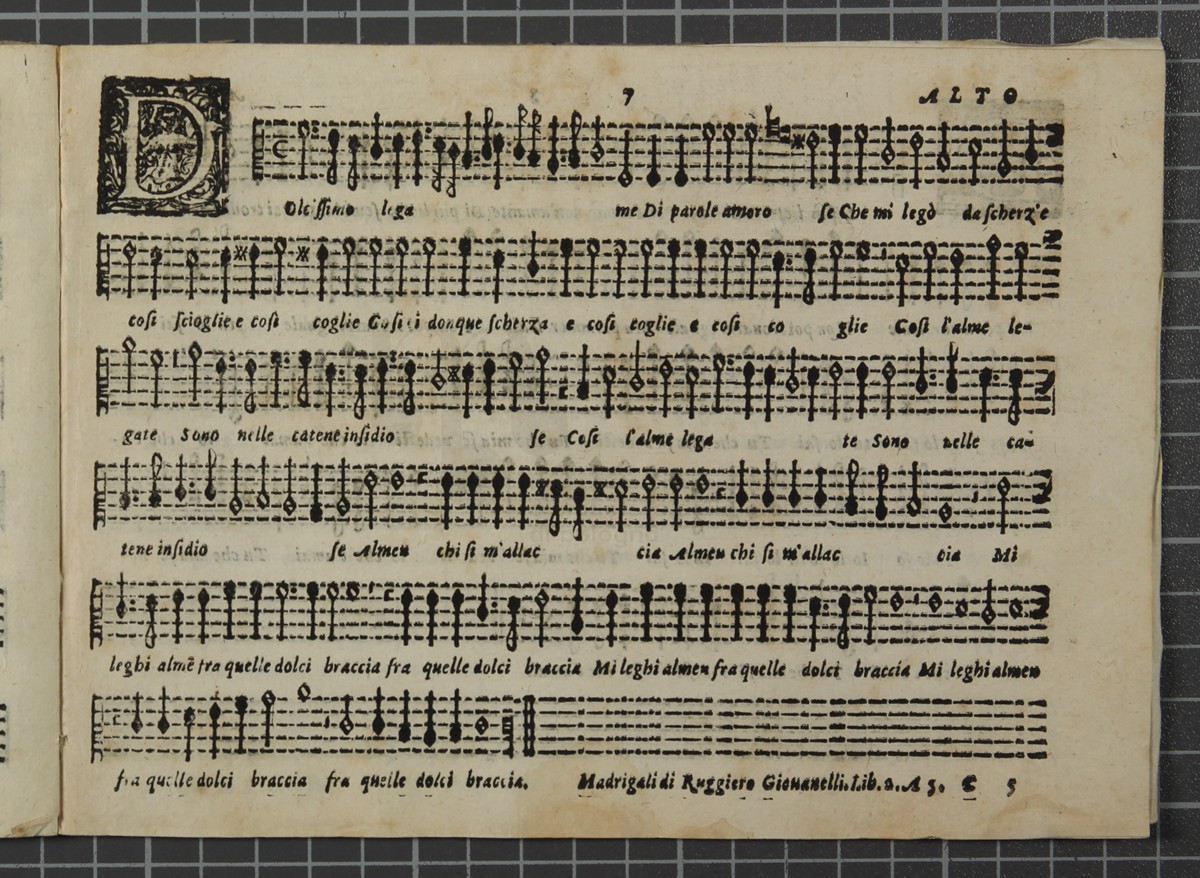 7 ALTO
DOlcissimo lega me Di parole amoro se Che mi legò da scherz'e
cosi scioglie e cosi coglie Cosi donque scherza e cosi coglie e cosi co glie Cosi l'alme le-
gate Sono nelle catene insidio se Cosi l'alme lega te Sono nelle ca-
tene insidio se Almen chi si m'allac cia Almen chi si m'allac cia Mi
leghi almē fra quelle dolci braccia fra quelle dolci braccia Mi leghi almen fra quelle dolci braccia Mi leghi almen
fra quelle dolci braccia fra quelle dolci braccia. Madrigali di Ruggiero Giouanelli. Lib. 2. A 5. C 5